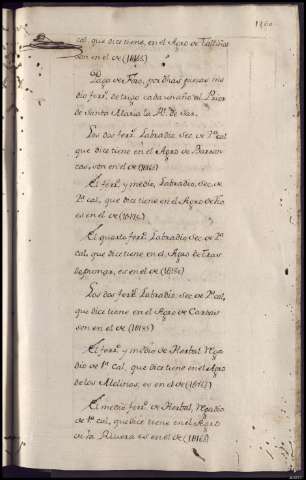 cal, que dice tiene, en el Agro de Talliños
son en el de (1816)
Pago de Foro, por otras piezas me
dio ferr.º de trigo cada un año al Prior
de Santa Maria la R.l de Sar.
Los dos ferr.s Labradio, Sec. de 2.ª cal
que dice tiene en el Agro de
cas, son en el de (1816)
El ferr.º y medio, Labradio, Sec. de
2.ª cal, que dice tiene en el Agro de Rio
es en el de (1817)
El quarto ferr.º Labradio Sec. de 2.ª
cal, que dice tiene en el Agro de Tras
es en el de (1818)
Los dos ferr.s Labradio, Sec. de 2.ª cal,
que dice tiene en el Agro de
son en el de (1818)
El ferr.º y medio de Herbal, Rega
dio de 1.ª cal, que dice tiene en el Agro
de los Molinos, es en el de (1816)
El medio ferr.º de Herbal, Regadio
de 1.ª cal, que dice tiene en el Agro
de la Rivera es en el de (1816)